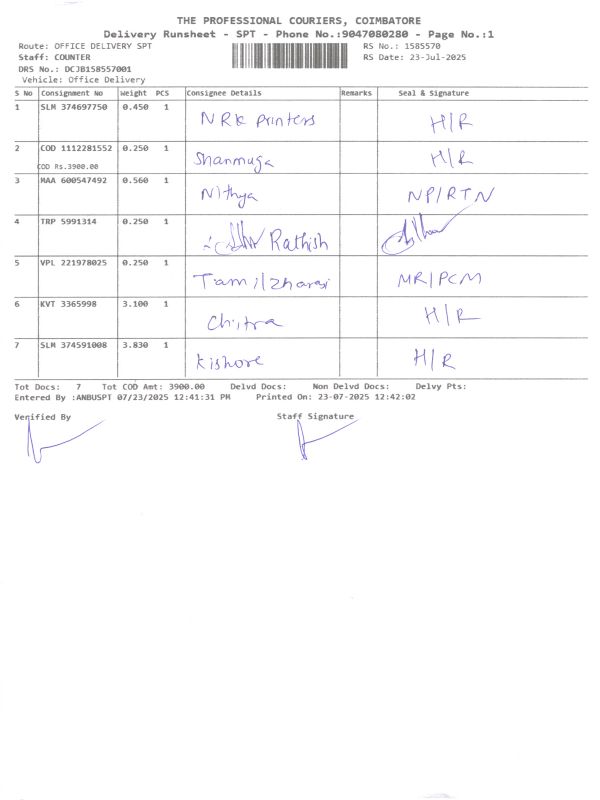 THE PROFESSIONAL COURIERS, COIMBATORE
Delivery Runsheet - SPT - Phone No.:9047080280 - Page No.:1
Route: OFFICE DELIVERY SPT RS No.: 1585570
Staff: COUNTER RS Date: 23-Jul-2025
DRS No.: DCJB158557001
Vehicle: Office Delivery
S No Consignment No Weight PCS Consignee Details Remarks Seal & Signature
1 SLM 374697750 0.450 1 NRK Printers H/R
2 COD 1112281552 0.250 1 Shanmuga H/R
COD Rs.3900.00
3 MAA 600547492 0.560 1 Nithya NP/RTN
4 TRP 5991314 0.250 1 Rathish
5 VPL 221978025 0.250 1 Tamilzharasi MR/PCM
6 KVT 3365998 3.100 1 Chitra H/R
7 SLM 374591008 3.830 1 Kishore H/R
Tot Docs: 7 Tot COD Amt: 3900.00 Delvd Docs: Non Delvd Docs: Delvy Pts:
Entered By :ANBUSPT 07/23/2025 12:41:31 PM Printed On: 23-07-2025 12:42:02
Verified By Staff Signature